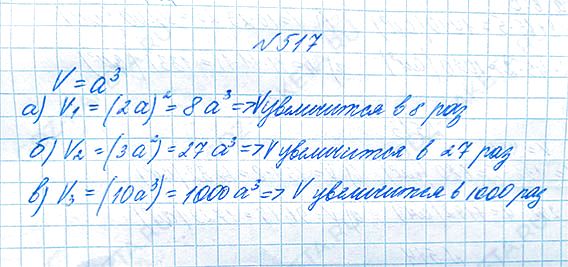 №517
V = a³
а) V₁ = (2a)² = 8a³ => V увеличится в 8 раз
б) V₂ = (3a²) = 27a³ => V увеличится в 27 раз
в) V₃ = (10a³) = 1000a³ => V увеличится в 1000 раз